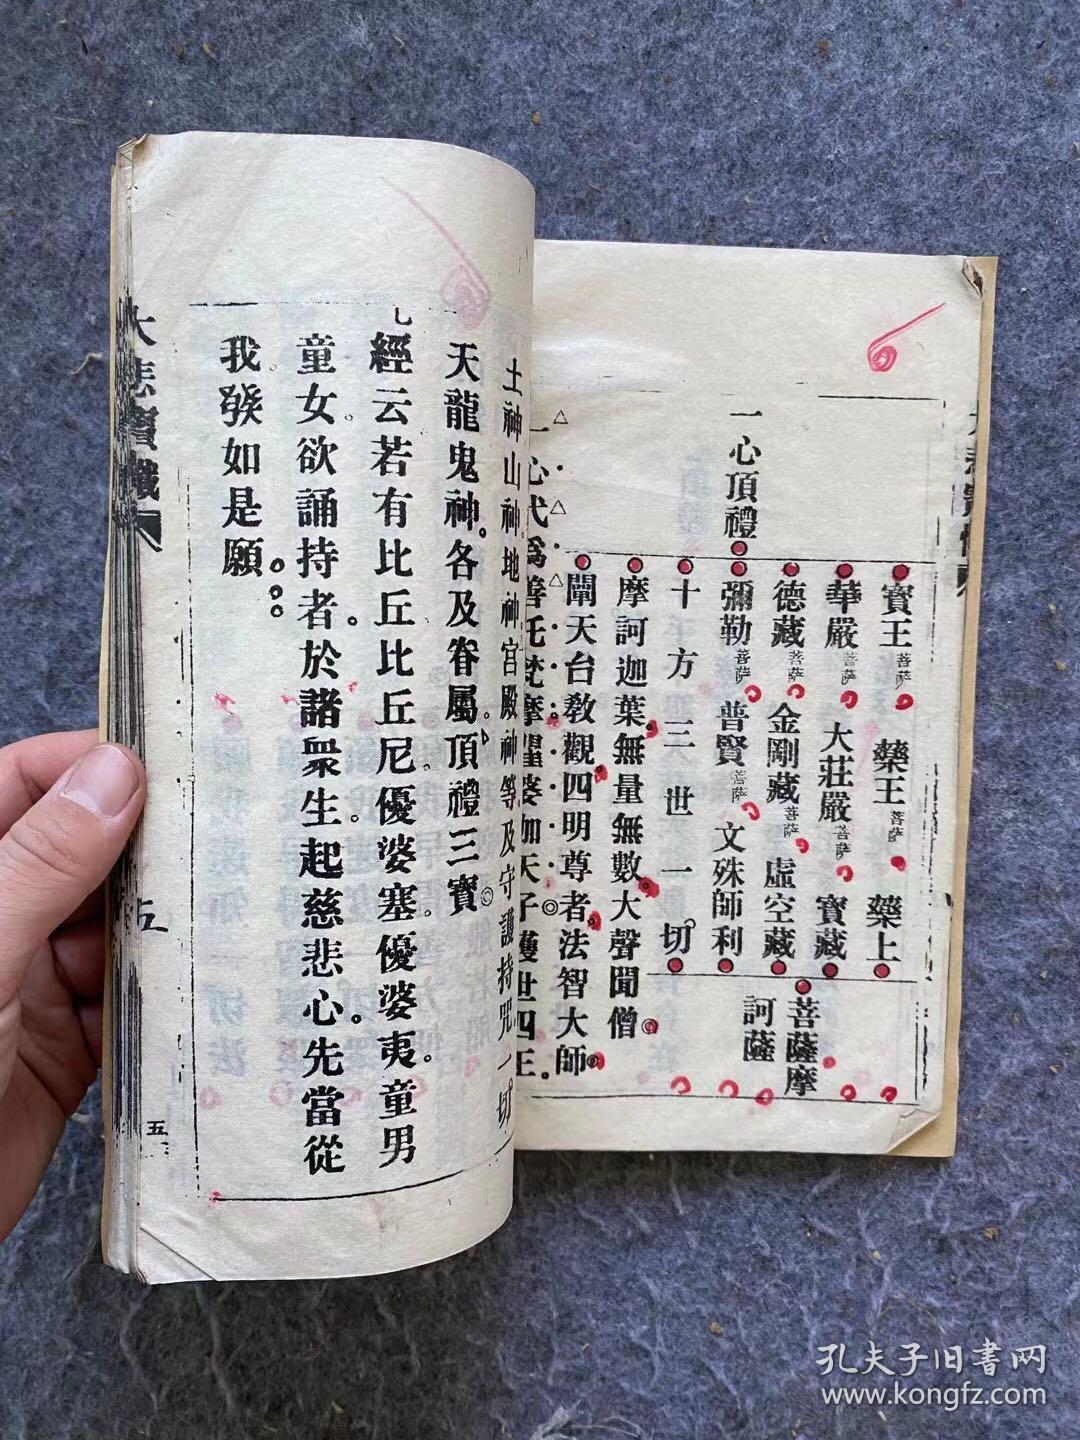 寶王菩萨 藥王菩萨 藥上
華嚴菩萨 大莊嚴菩萨 寶藏
德藏菩萨 金剛藏菩萨 虛空藏
菩薩摩
訶薩
一心頂禮
彌勒菩萨 普賢菩萨 文殊師利
十方三世一切
摩訶迦葉無量無數大聲聞僧
闡天台教觀四明尊者法智大師
一心代爲善吒梵摩瞿婆伽天子護世四王
土神山神地神宮殿神等及守護持咒一切
天龍鬼神各及眷屬頂禮三寶
經云若有比丘比丘尼優婆塞優婆夷童男
童女欲誦持者於諸衆生起慈悲心先當從
我發如是願
大悲寶懺
五
孔夫子旧書网
www.kongfz.com